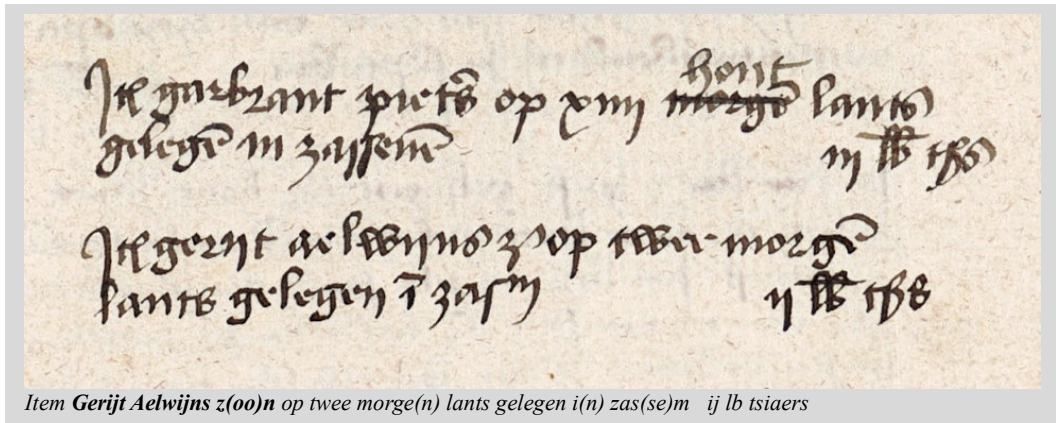 Itē garbrant piet's op xiiij hont̄ morgē lants
gelegē in zassenē iij lb tsiaers
Itē gerijt aelwijns z op twee morgē
lants gelegen ī zasm ij lb tsiaers
Item Gerijt Aelwijns z(oo)n op twee morge(n) lants gelegen i(n) zas(se)m ij lb tsiaers